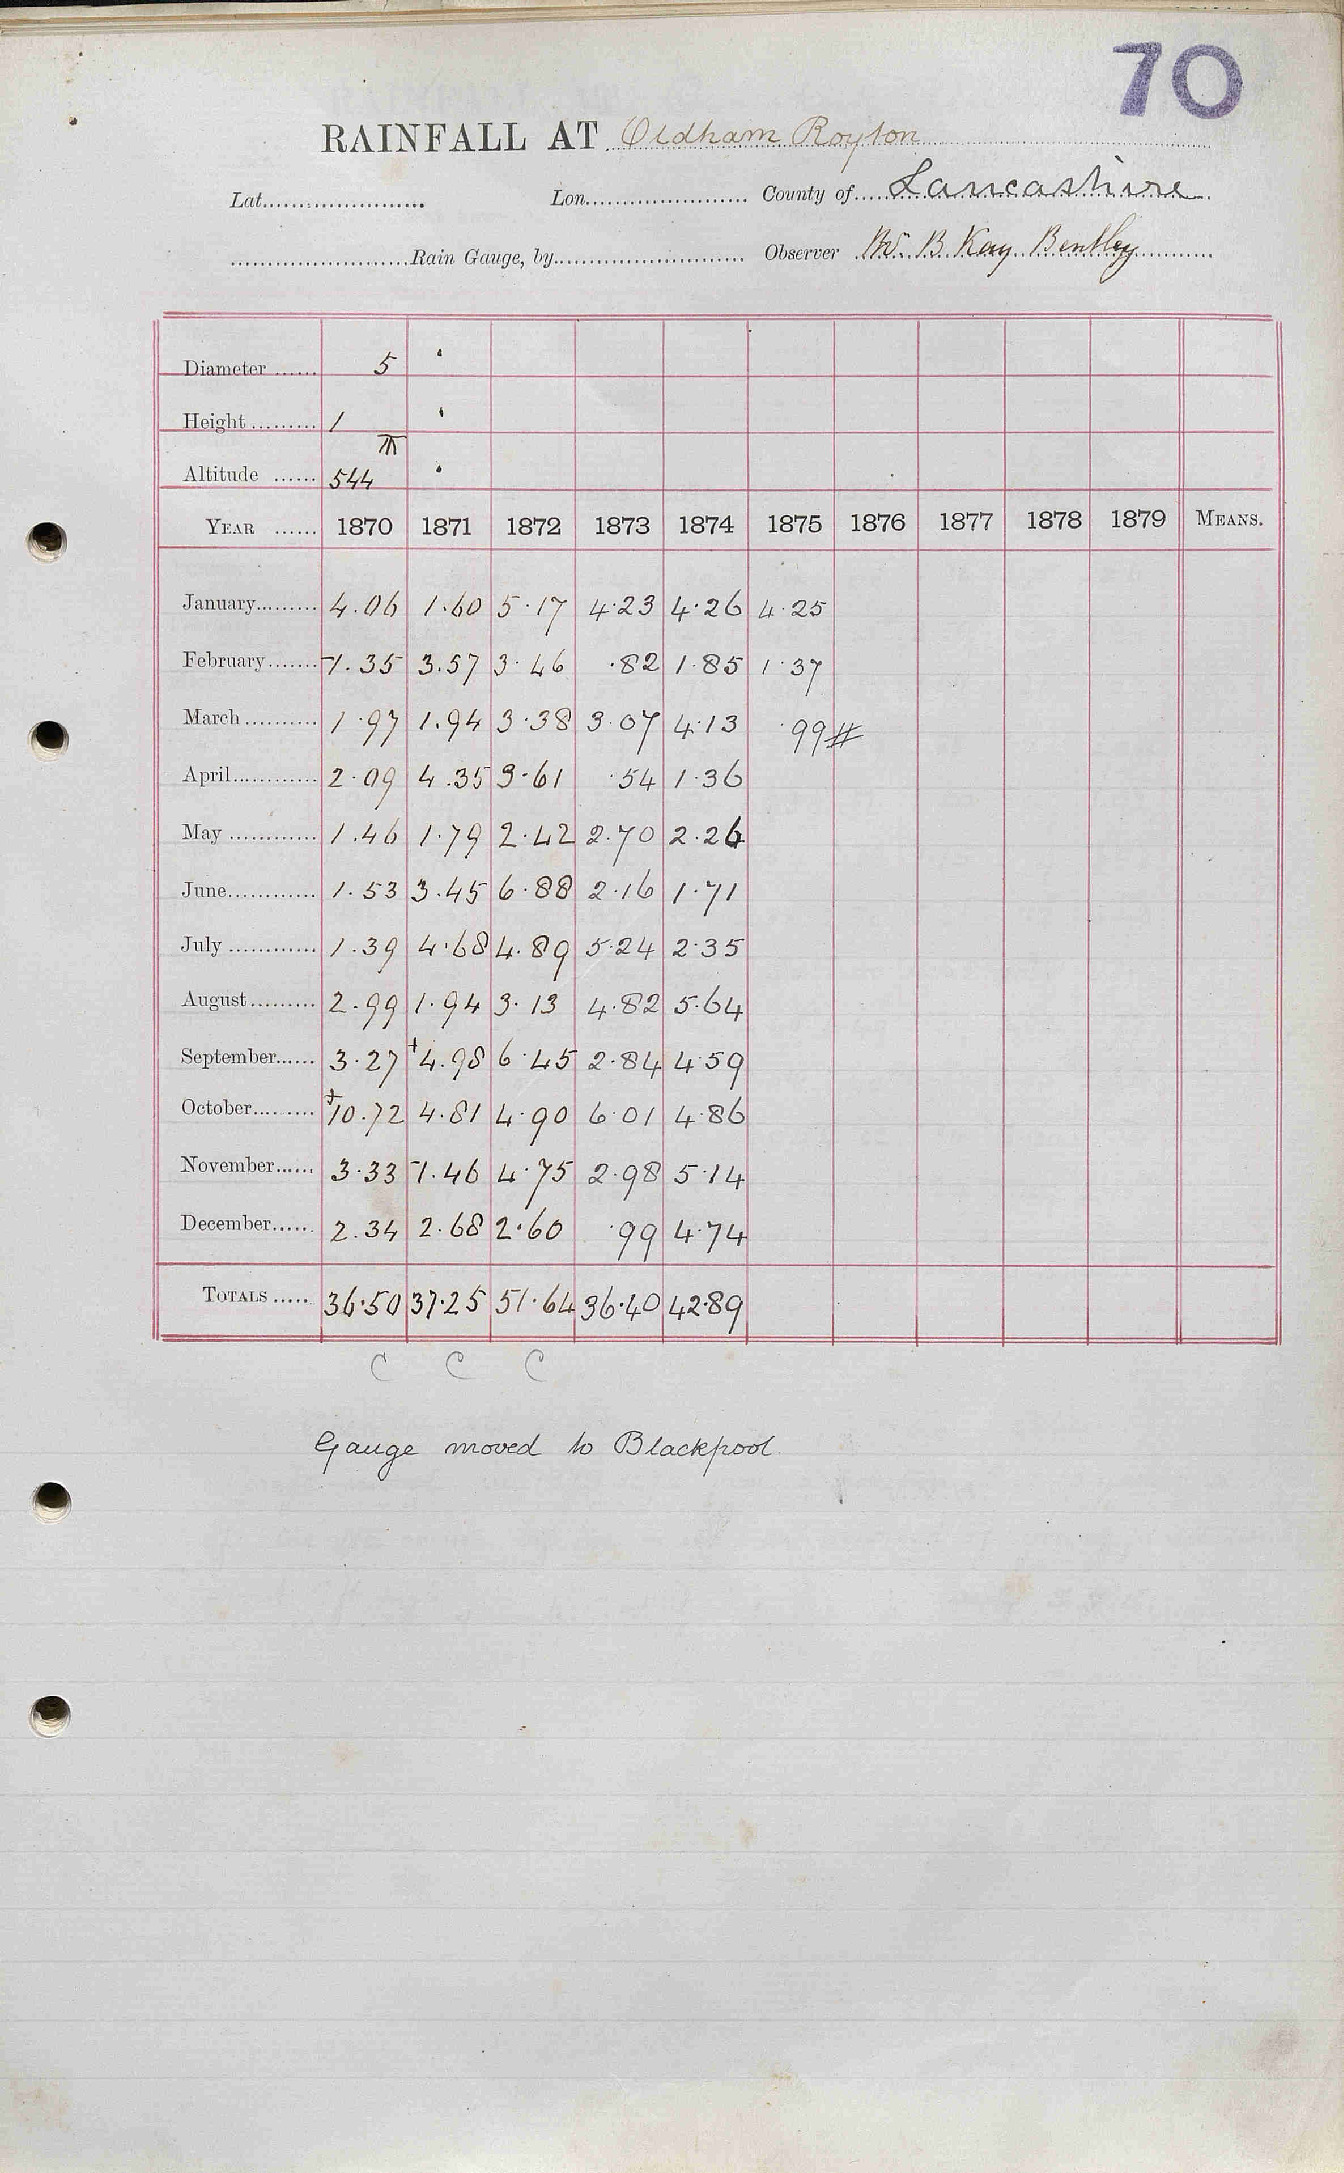 70
RAINFALL AT Oldham Royton
Lat. Lon. County of Lancashire
Rain Gauge, by Observer B. Kay Bentley
Diameter 5
Height 1
Altitude 544
YEAR 1870 1871 1872 1873 1874 1875 1876 1877 1878 1879 MEANS.
January 4.06 1.60 5.17 4.23 4.26 4.25
February 1.35 3.57 3.46 .82 1.85 1.37
March 1.97 1.94 3.38 3.07 4.13 .99#
April 2.09 4.35 3.61 .54 1.36
May 1.46 1.79 2.42 2.70 2.26
June 1.53 3.45 6.88 2.16 1.71
July 1.39 4.68 4.89 5.24 2.35
August 2.99 1.94 3.13 4.82 5.64
September 3.27 +4.98 6.45 2.84 4.59
October +10.72 4.81 4.90 6.01 4.86
November 3.33 -1.46 4.75 2.98 5.14
December 2.34 2.68 2.60 .99 4.74
TOTALS 36.50 37.25 51.64 36.40 42.89
C C C
Gauge moved to Blackpool